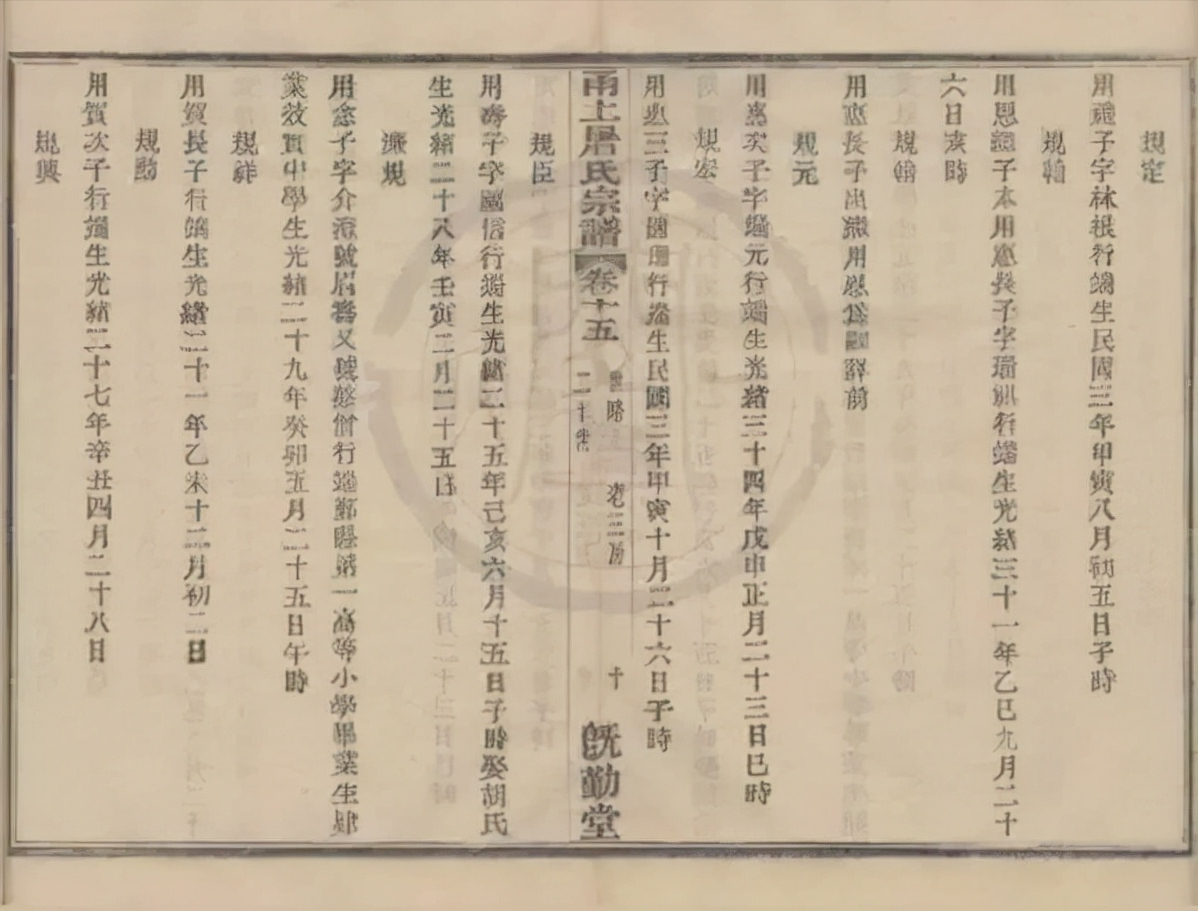 規定
用 子字林根行 生民國三年甲寅八月初五日子時
規翰
用恩 子本用惠長子字 行 生光緒三十一年乙巳九月二十
六日亥時
規翰
用惠長子出 用恩 詳前
規元
用惠次子字 元行 生光緒三十四年戊申正月二十三日巳時
規宏
用惠三子字 行 生民國三年甲寅十月二十六日子時
甬上屠氏宗譜 卷十五 老二房 十 既勤堂
規臣
用壽子字國信行 生光緒二十五年己亥六月十五日子時娶胡氏
生光緒二十八年壬寅二月二十五日
濂規
用 子字介 號眉 又號 僧行 鄞縣第一高等小學畢業生肄
業效實中學生光緒二十九年癸卯五月二十五日午時
規祥
用賀長子行 生光緒二十一年乙未十二月初二日
規勳
用賀次子行 生光緒二十七年辛丑四月二十八日
規興